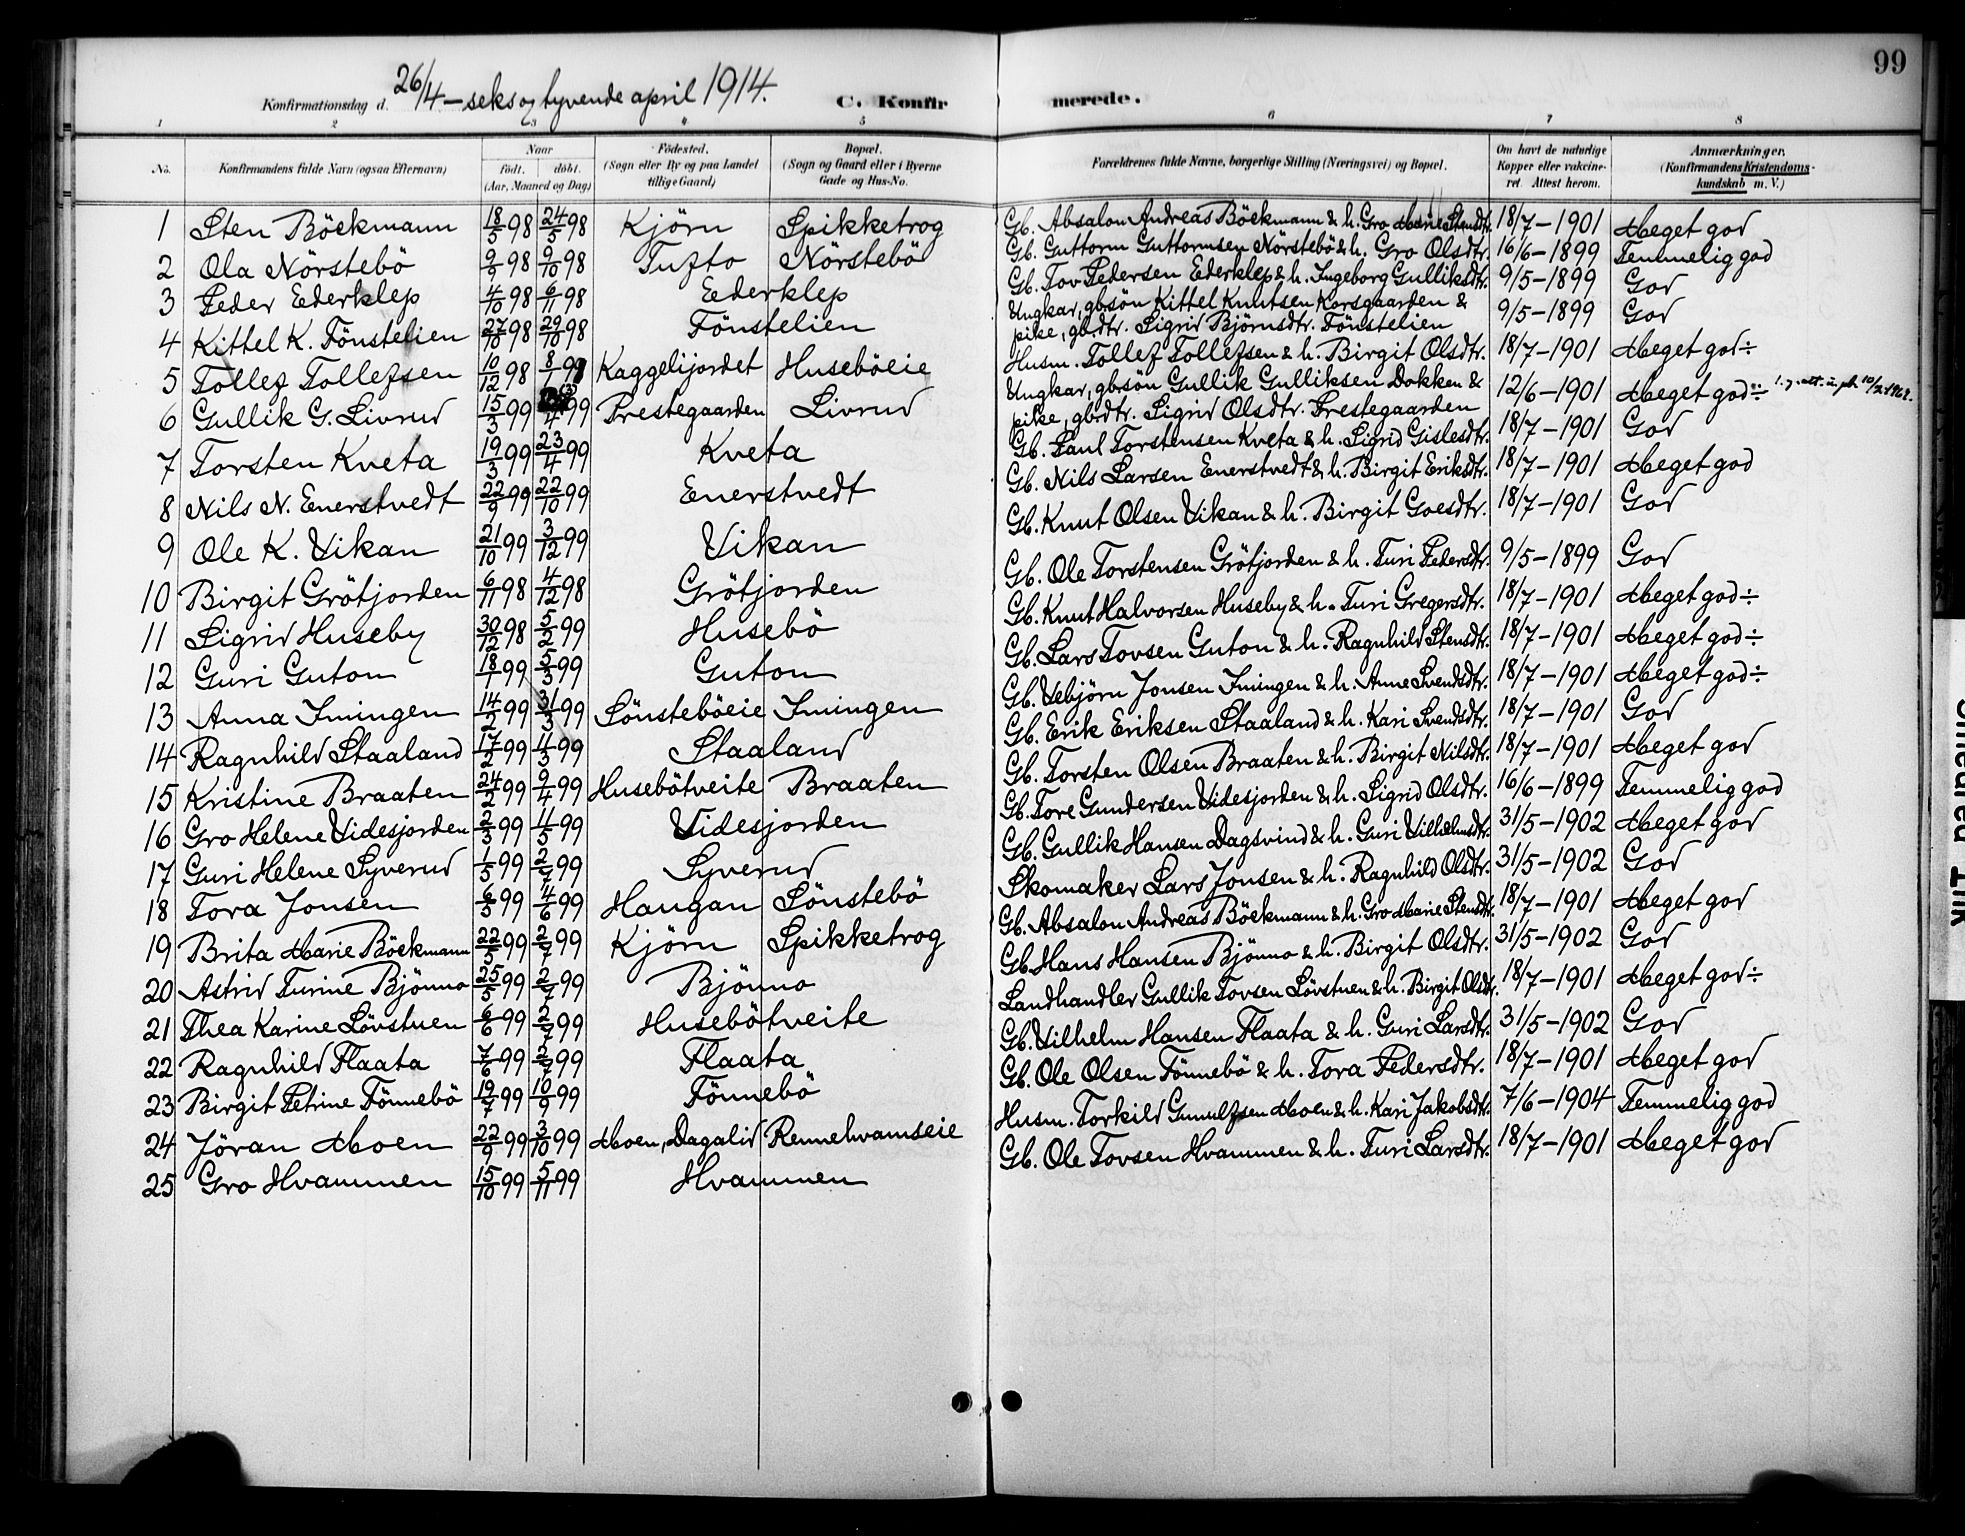 99
Konfirmationsdag d. 26/4 – seks og tyvende april 1914. C. Konfirmerede.
1 2 3 4 5 6 7 8
No. Konfirmandens fulde Navn (ogsaa Efternavn) Naar födt. döbt. (Aar, Maaned og Dag) Födested. (Sogn eller By og paa Landet tillige Gaard) Bopæl. (Sogn og Gaard eller i Byerne Gade og Hus-No. Forældrenes fulde Navne, borgerlige Stilling (Næringsvei) og Bopæl. Om havt de naturlige Kopper eller vakcineret. Attest herom. Anmærkninger, (Konfirmandens Kristendomskundskab m. V.)
1 Sten Böckmann 18/5 98 24/5 98 Kjörn Spikketrog Gb. Absalon Andreas Böckmann & h. Gro Marie Stensdtr. 18/7 – 1901 Meget god
2 Ola Nörstebö 9/9 98 9/10 98 Tufto Nörstebö Gb. Guttorm Guttormsen Nörstebö & h. Gro Olsdtr. 16/6 – 1899 Temmelig god
3 Peder Ederklep 4/10 98 6/11 98 Ederklep Gb. Tov Pedersen Ederklep & h. Ingeborg Gulliksdtr. 9/5 – 1899 God
4 Kittel K. Fönstelien 27/10 98 29/10 98 Fönstelien Ungkar, gbsön Kittel Knutsen Korsgaarden &
pike, gbdtr. Sigrid Björnsdtr. Fönstelien 9/5 – 1899 God
5 Tollef Tollefsen 10/12 98 8/1 99 Kaggelijordet Huseböeie Husm. Tollef Tollefsen & h. Birgit Olsdtr. 18/7 – 1901 Meget god ÷
6 Gullik G. Livrud 15/3 99 /4 99 Prestegaarden Livrud Ungkar, gbsön Gullik Gulliksen Dokken &
pike, gbdtr. Sigrid Olsdtr. Prestegaarden 12/6 – 1901 Meget god ÷
7 Torsten Kveta 19/3 99 23/4 99 Kveta Gb. Paul Torstensen Kveta & h. Sigrid Gislesdtr. 18/7 – 1901 God
8 Nils N. Enerstvedt 22/9 99 22/10 99 Enerstvedt Gb. Nils Larsen Enerstvedt & h. Birgit Eriksdtr. 18/7 – 1901 Meget god
9 Ole K. Vikan 21/10 99 3/12 99 Vikan Gb. Knut Olsen Vikan & h. Birgit Goesdtr. 18/7 – 1901 God
10 Birgit Grötjorden 6/11 98 4/12 98 Grötjorden Gb. Ole Torstensen Grötjorden & h. Turi Pedersdtr. 9/5 – 1899 God
11 Sigrid Huseby 30/12 98 5/2 99 Husebö Gb. Knut Halvorsen Huseby & h. Turi Gregersdtr. 18/7 – 1901 Meget god ÷
12 Guri Guton 18/1 99 5/3 99 Guton Gb. Lars Tovsen Guton & h. Ragnhild Stensdtr. 18/7 – 1901 Meget god ÷
13 Anna Imingen 14/2 99 31/3 99 Sönsteböeie Imingen Gb. Vebjörn Jonsen Imingen & h. Anne Svendsdtr. 18/7 – 1901 Meget god ÷
14 Ragnhild Staaland 17/2 99 11/3 99 Staaland Gb. Erik Eriksen Staaland & h. Kari Svendsdtr. 18/7 – 1901 God
15 Kristine Braaten 24/2 99 9/4 99 Husebötveite Braaten Gb. Torsten Olsen Braaten & h. Birgit Nilsdtr. 18/7 – 1901 Meget god
16 Gro Helene Videsjorden 2/3 99 11/5 99 Videsjorden Gb. Tore Gundersen Videsjorden & h. Sigrid Olsdtr. 16/6 – 1899 Temmelig god
17 Guri Helene Syverud 1/5 99 2/7 99 Syverud Gb. Gullik Hansen Dagsvind & h. Guri Vilhelmsdtr. 31/5 – 1902 Meget god
18 Tora Jonsen 6/5 99 4/6 99 Haugan Sönstebö Skomaker Lars Jonsen & h. Ragnhild Olsdtr. 31/5 – 1902 God
19 Brita Marie Böckmann 22/5 99 2/7 99 Kjörn Spikketrog Gb. Absalon Andreas Böckmann & h. Gro Marie Stensdtr. 18/7 – 1901 Meget god
20 Astrid Turine Björno 25/5 99 2/7 99 Björno Gb. Hans Hansen Björno & h. Birgit Olsdtr. 31/5 – 1902 God
21 Thea Karine Lövstuen 6/6 99 2/7 99 Husebötveite Landhandler Gullik Tovsen Lövstuen & h. Birgit Olsdtr. 18/7 – 1901 Meget god ÷
22 Ragnhild Flaata 7/6 99 2/7 99 Flaata Gb. Vilhelm Hansen Flaata & h. Guri Larsdtr. 31/5 – 1902 God
23 Birgit Petrine Fönnebö 19/7 99 10/9 99 Fönnebö Gb. Ole Olsen Fönnebö & h. Tora Pedersdtr. 18/7 – 1901 Meget god
24 Jöran Moen 22/9 99 3/10 99 Moen, Dagalid Rennehvamseie Husm. Torkild Gunulfsen Moen & h. Kari Jakobsdtr. 7/6 – 1904 Temmelig god
25 Gro Hvammen 15/10 99 5/11 99 Hvammen Gb. Ole Tovsen Hvammen & h. Turi Larsdtr. 18/7 – 1901 Meget god